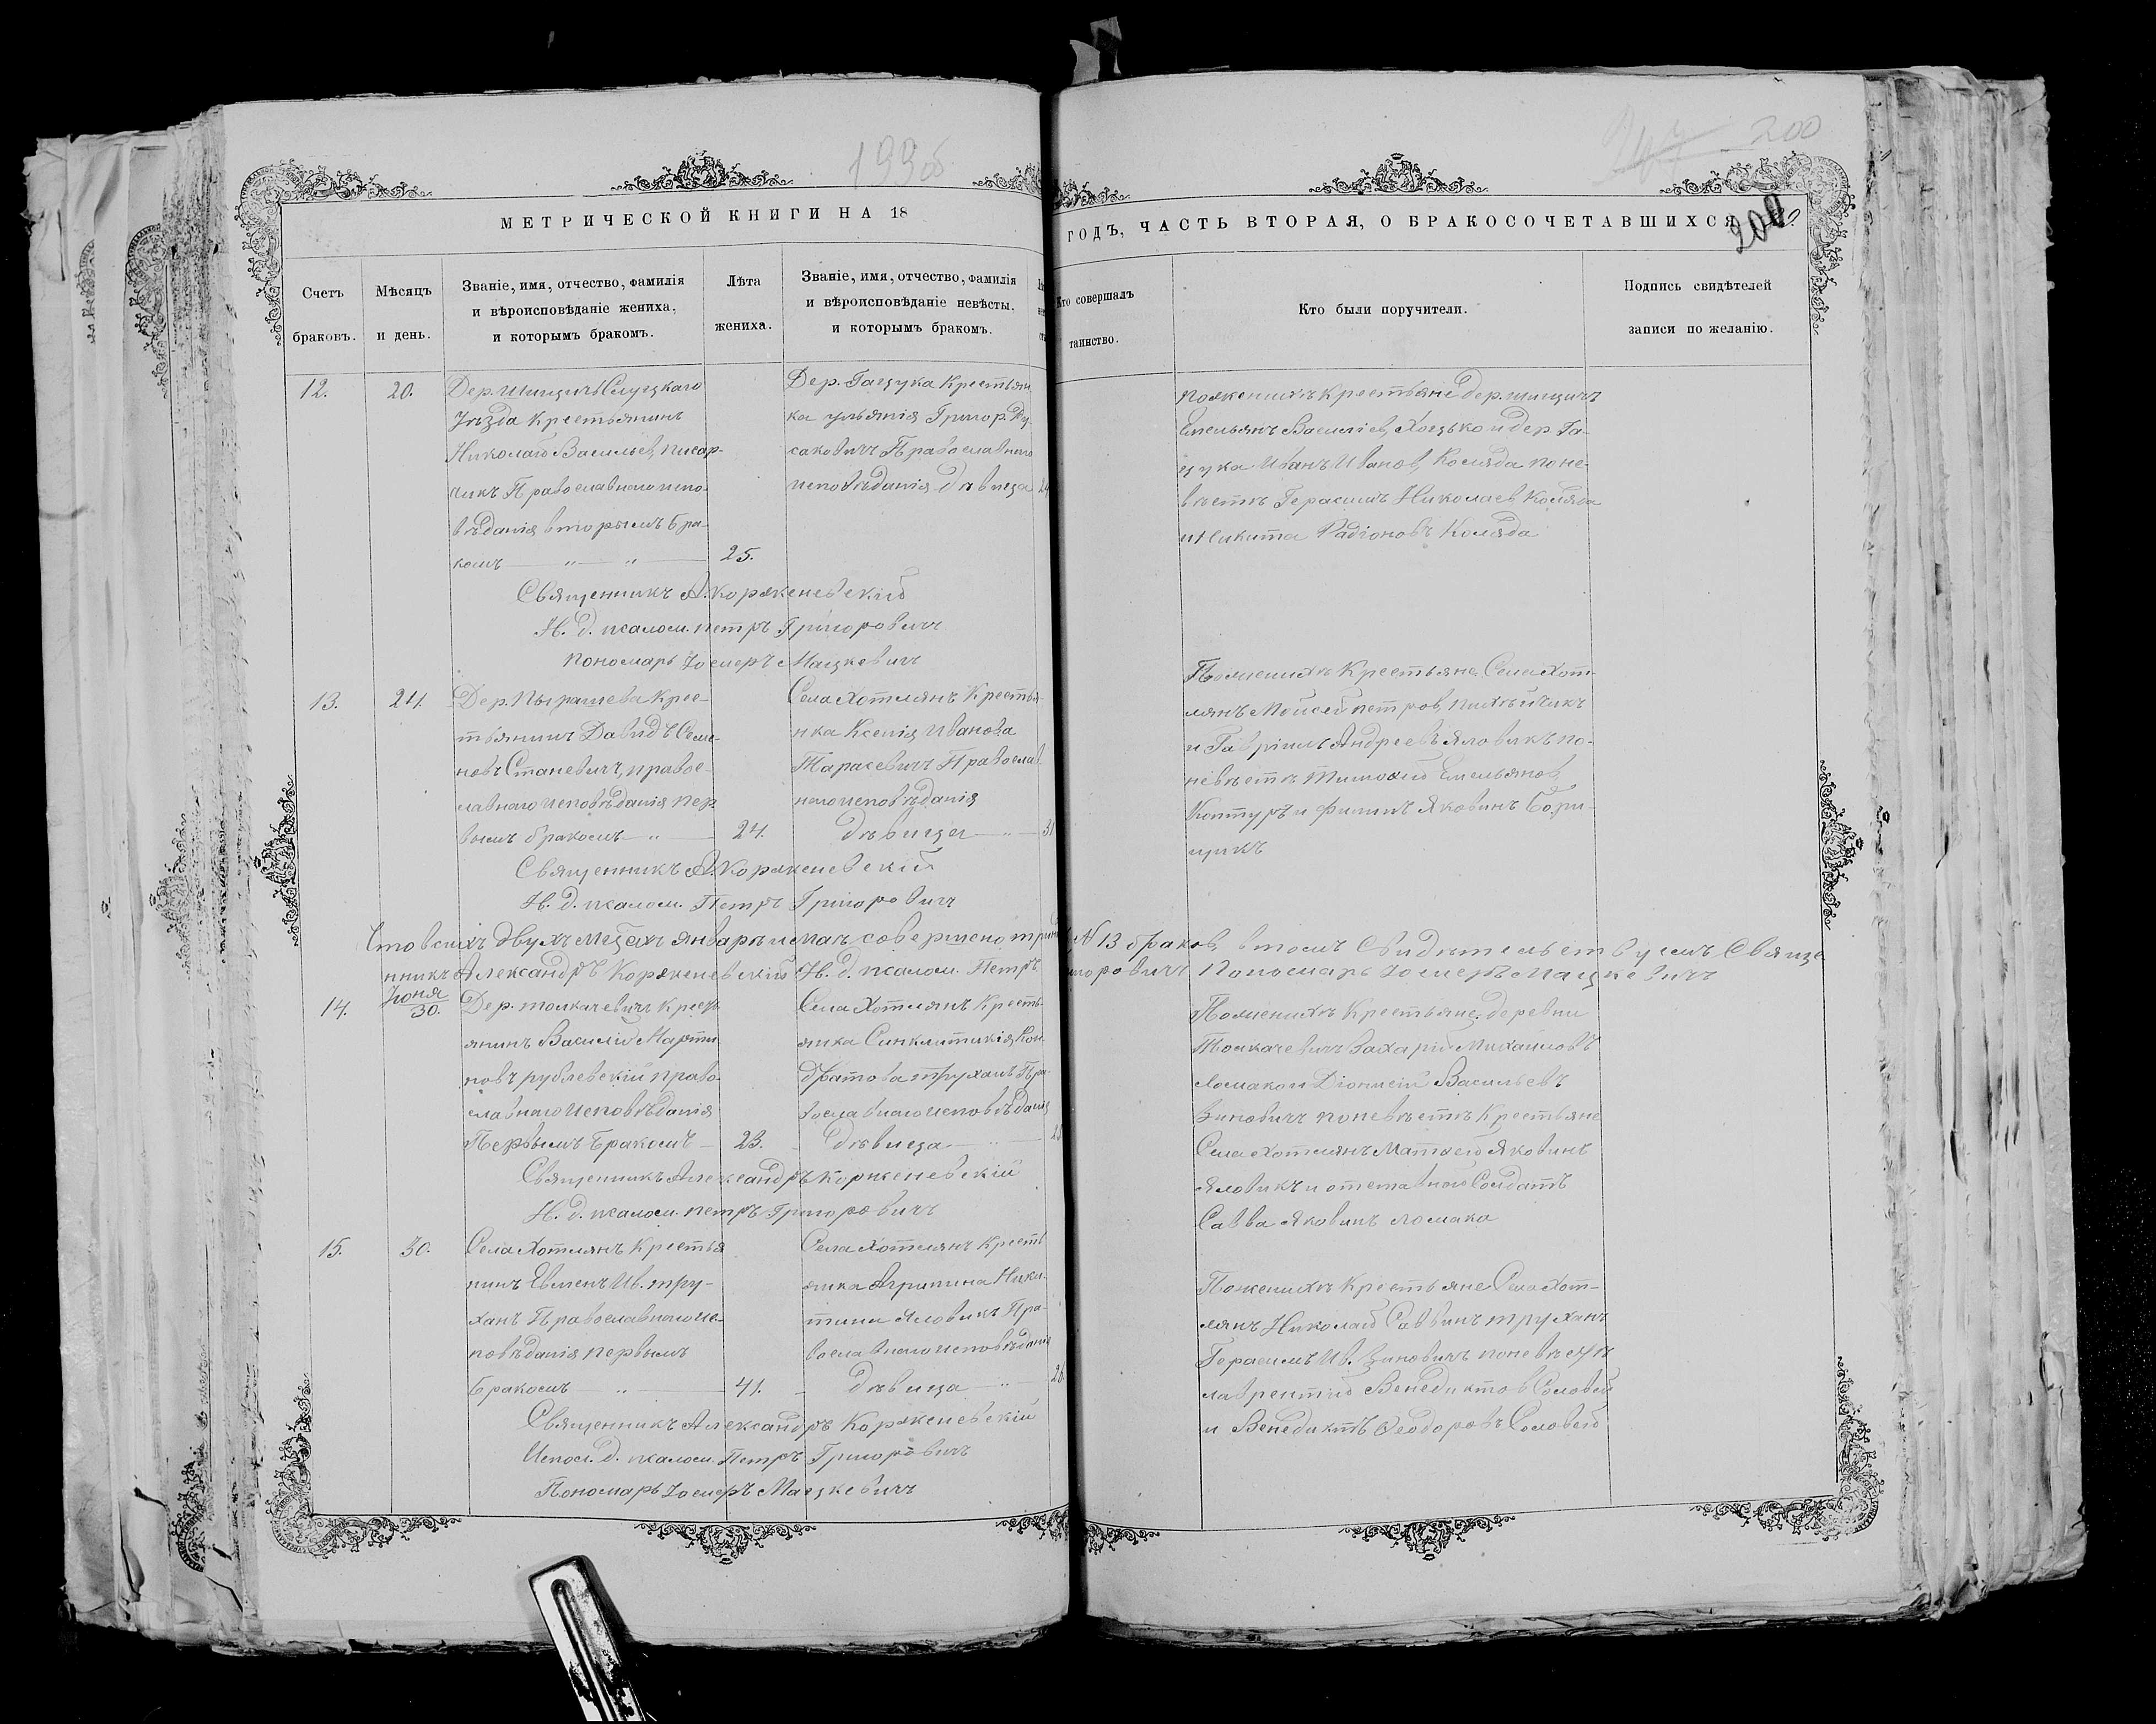 199об
247 200
200
МЕТРИЧЕСКОЙ КНИГИ НА 18
ГОДЪ, ЧАСТЬ ВТОРАЯ, О БРАКОСОЧЕТАВШИХСЯ
Счетъ браковъ.
Мѣсяцъ и день.
Званіе, имя, отчество, фамилія и вѣроисповѣданіе жениха, и которымъ бракомъ.
Лѣта жениха.
Званіе, имя, отчество, фамилія и вѣроисповѣданіе невѣсты, и которымъ бракомъ.
Кто совершалъ таинство.
Кто были поручители.
Подпись свидѣтелей записи по желанію.
12.
20.
Дер. Шищичъ Слуцкаго
Уѣзда Крестьянинъ
Николай Васильев, Писар-
чикъ Православнаго испо-
вѣданія вторымъ бра-
комъ — „ — „ — 25.
Дер. Гацука Крестьян
ка Ульянія Григор. Ру-
саковичъ Православнаго
исповѣданія дѣвица
пожениихъ Крестьяне дер. шищичъ
Емельянъ Василіев, Хоцько и дер. Га-
цука Иванъ Иванов, Коляда поне-
вѣстѣ Герасимъ Николаев Коляда
и Никита Радіоновъ Коляда
Священникъ А. Корженевскій
И. д. псалом. Петръ Григоровичъ
Пономарь Іосифъ Мацкевичъ
13.
24.
Дер. Пырашева Крес-
тьянинъ Давидъ Семе-
новъ Станевичъ, правос-
лавнаго исповѣданія пер
вымъ бракомъ — „ — 24.
Села Хотлянъ Крестья-
нка Ксенія Иванова
Тарасевичъ Православ
наго исповѣданія
дѣвица — „ — 31
Поженихѣ Крестьяне Села Хот-
лянъ Моисей Петров,
и Гавріилъ Андреевъ Яловикъ по-
невѣстѣ Тимофей Емельянов,
Контуръ и Филипъ Яковинъ
Священникъ А. Корженевскій
И. д. псалом. Петръ Григоровичъ
Что всихъ двухъ мцахъ Январѣ и Маѣ совершено трин
N 13 браков, втомъ Свидѣтельствуемъ Свяще
нникъ Александръ Корженевскій И. д. псалом. Петръ
игоровичъ Пономарь Іосифъ Мацкевичъ
14.
Іюня
30.
Дер. толкачевичъ Кресть
янинъ Василій Марти
новъ рублевскій право-
славнаго исповѣданія
Первымъ Бракомъ — 23.
Села Хотлянъ Кресть-
янка Синклитикія Кон
дратова труханъ Пра-
вославнаго исповѣданія
дѣвица — „ —
Поженихѣ Крестьяне деревни
Толкачевичъ Захарій Михаиловъ
Ломако и Діонисій Васильевъ
Зиновичъ поневѣстѣ Крестьяне
Села Хотлянъ Матвей Яковинъ
Яловикъ и отставной Солдатъ
Савва Яковинъ ломако
Священникъ Александръ Корженевскій
И. д. псалом. Петръ Григоровичъ
15.
30.
Села Хотлянъ Крестья
нинъ Евменъ Ив. тру-
ханъ Православнаго ис-
повѣданія первымъ
бракомъ — „ — 41.
Села Хотлянъ Кресть
янка Агрипина Ники-
тина Яловикъ Пра-
вославнаго исповѣданія
дѣвица — „ —
Поженихѣ Крестьяне Села Хот-
лянъ Николай Саввинъ труханъ
Герасимъ Ив. Зиновичъ поневѣстѣ
лаврентій Венедиктов Соловей
и Венедиктъ Ѳеодоровъ Соловей
Священникъ Александръ Корженевскій
Испол. д. псалом. Петръ Григоровичъ
Пономарь Іосифъ Мацкевичъ